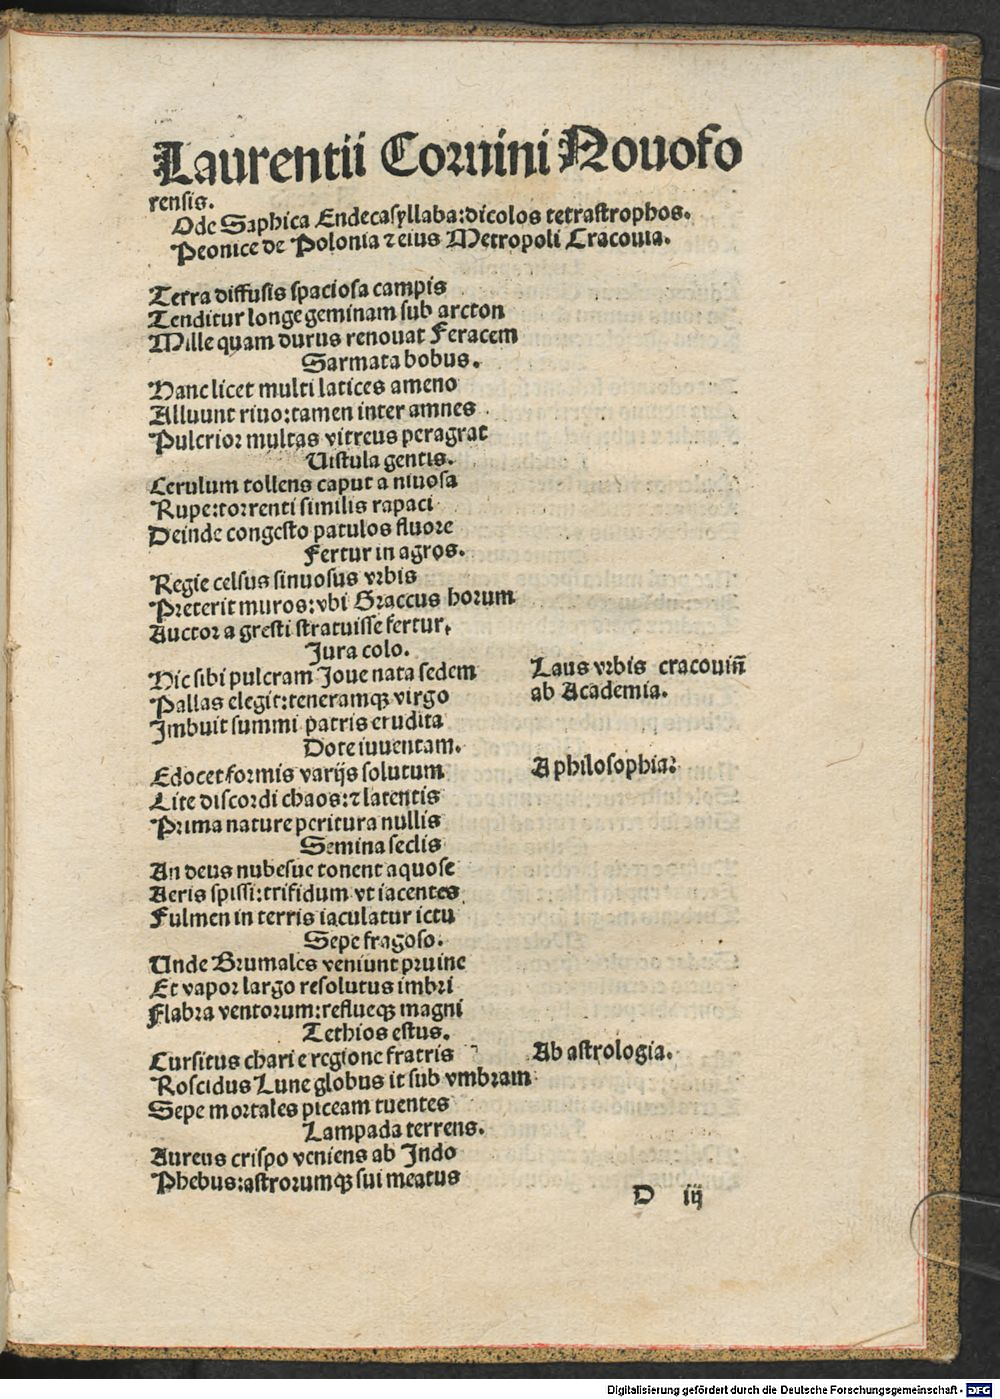 Laurentii Coruini Nouofo
rensis.
Ode Saphica Endecasyllaba:dicolos tetrastrophos.
Peonice de Polonia ⁊ eius Metropoli Cracouia.
Terra diffusis spaciosa campis
Tenditur longe geminam sub arcton
Mille quam durus renouat Feracem
Sarmata bobus.
Hanc licet multi latices ameno
Alluunt riuo:tamen inter amnes
Pulcrior multas vitreus peragrat
Uistula gentis.
Cerulum tollens caput a niuosa
Rupe:torrenti similis rapaci
Deinde congesto patulos fluore
Fertur in agros.
Regie celsus sinuosus vrbis
Preterit muros:vbi Graccus horum
Auctor a gresti stratuisse fertur,
Jura colo.
Hic sibi pulcram Joue nata sedem
Laus vrbis cracouiñ
Pallas elegit:teneramqꝫ virgo
ab Academia.
Imbuit summi patris erudita
Dote iuuentam.
Edocet formis varijs solutum
A philosophia:
Lite discordi chaos:⁊ latentis
Prima nature peritura nullis
Semina seclis
An deus nubesue tonent aquose
Aeris spissi:trifidum vt iacentes
Fulmen in terris iaculatur ictu
Sepe fragoso.
Unde Brumales veniunt pruine
Et vapor largo resolutus imbri
Flabra ventorum:reflueqꝫ magni
Tethios estus.
Cursitus chari e regione fratris
Ab astrologia.
Roscidus Lune globus it sub vmbram
Sepe mortales piceam tuentes
Lampada terrens.
Aureus crispo veniens ab Indo
Phebus:astrorumqꝫ sui meatus
D iij
Digitalisierung gefördert durch die Deutsche Forschungsgemeinschaft - DFG